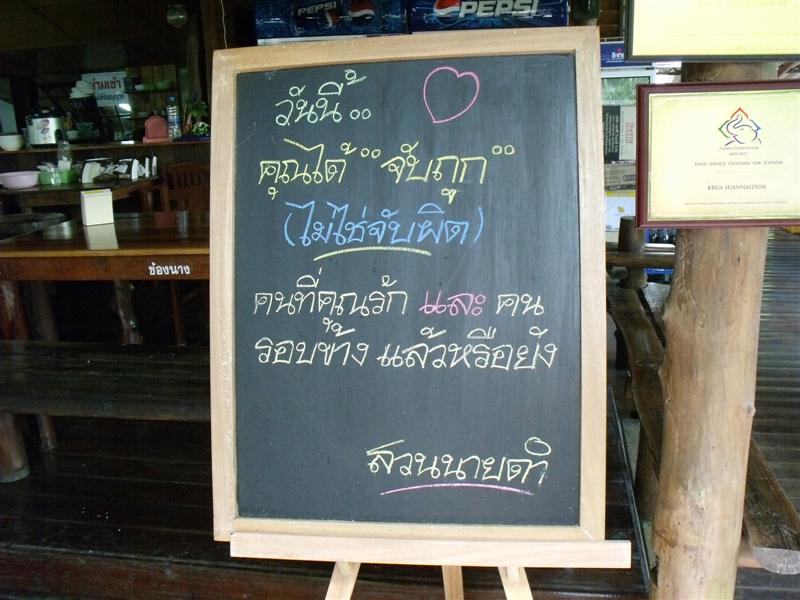 PEPSI
PEPSI
วันนี้..
คุณได้ "จับถูก"
(ไม่ใช่จับผิด)
คนที่คุณรัก และ คน
รอบข้าง แล้วหรือยัง
สวนนายดำ
ช้องนาง
FOOD SERVICE STANDARD FOR TOURISM
KRUA SUANNAIDUM